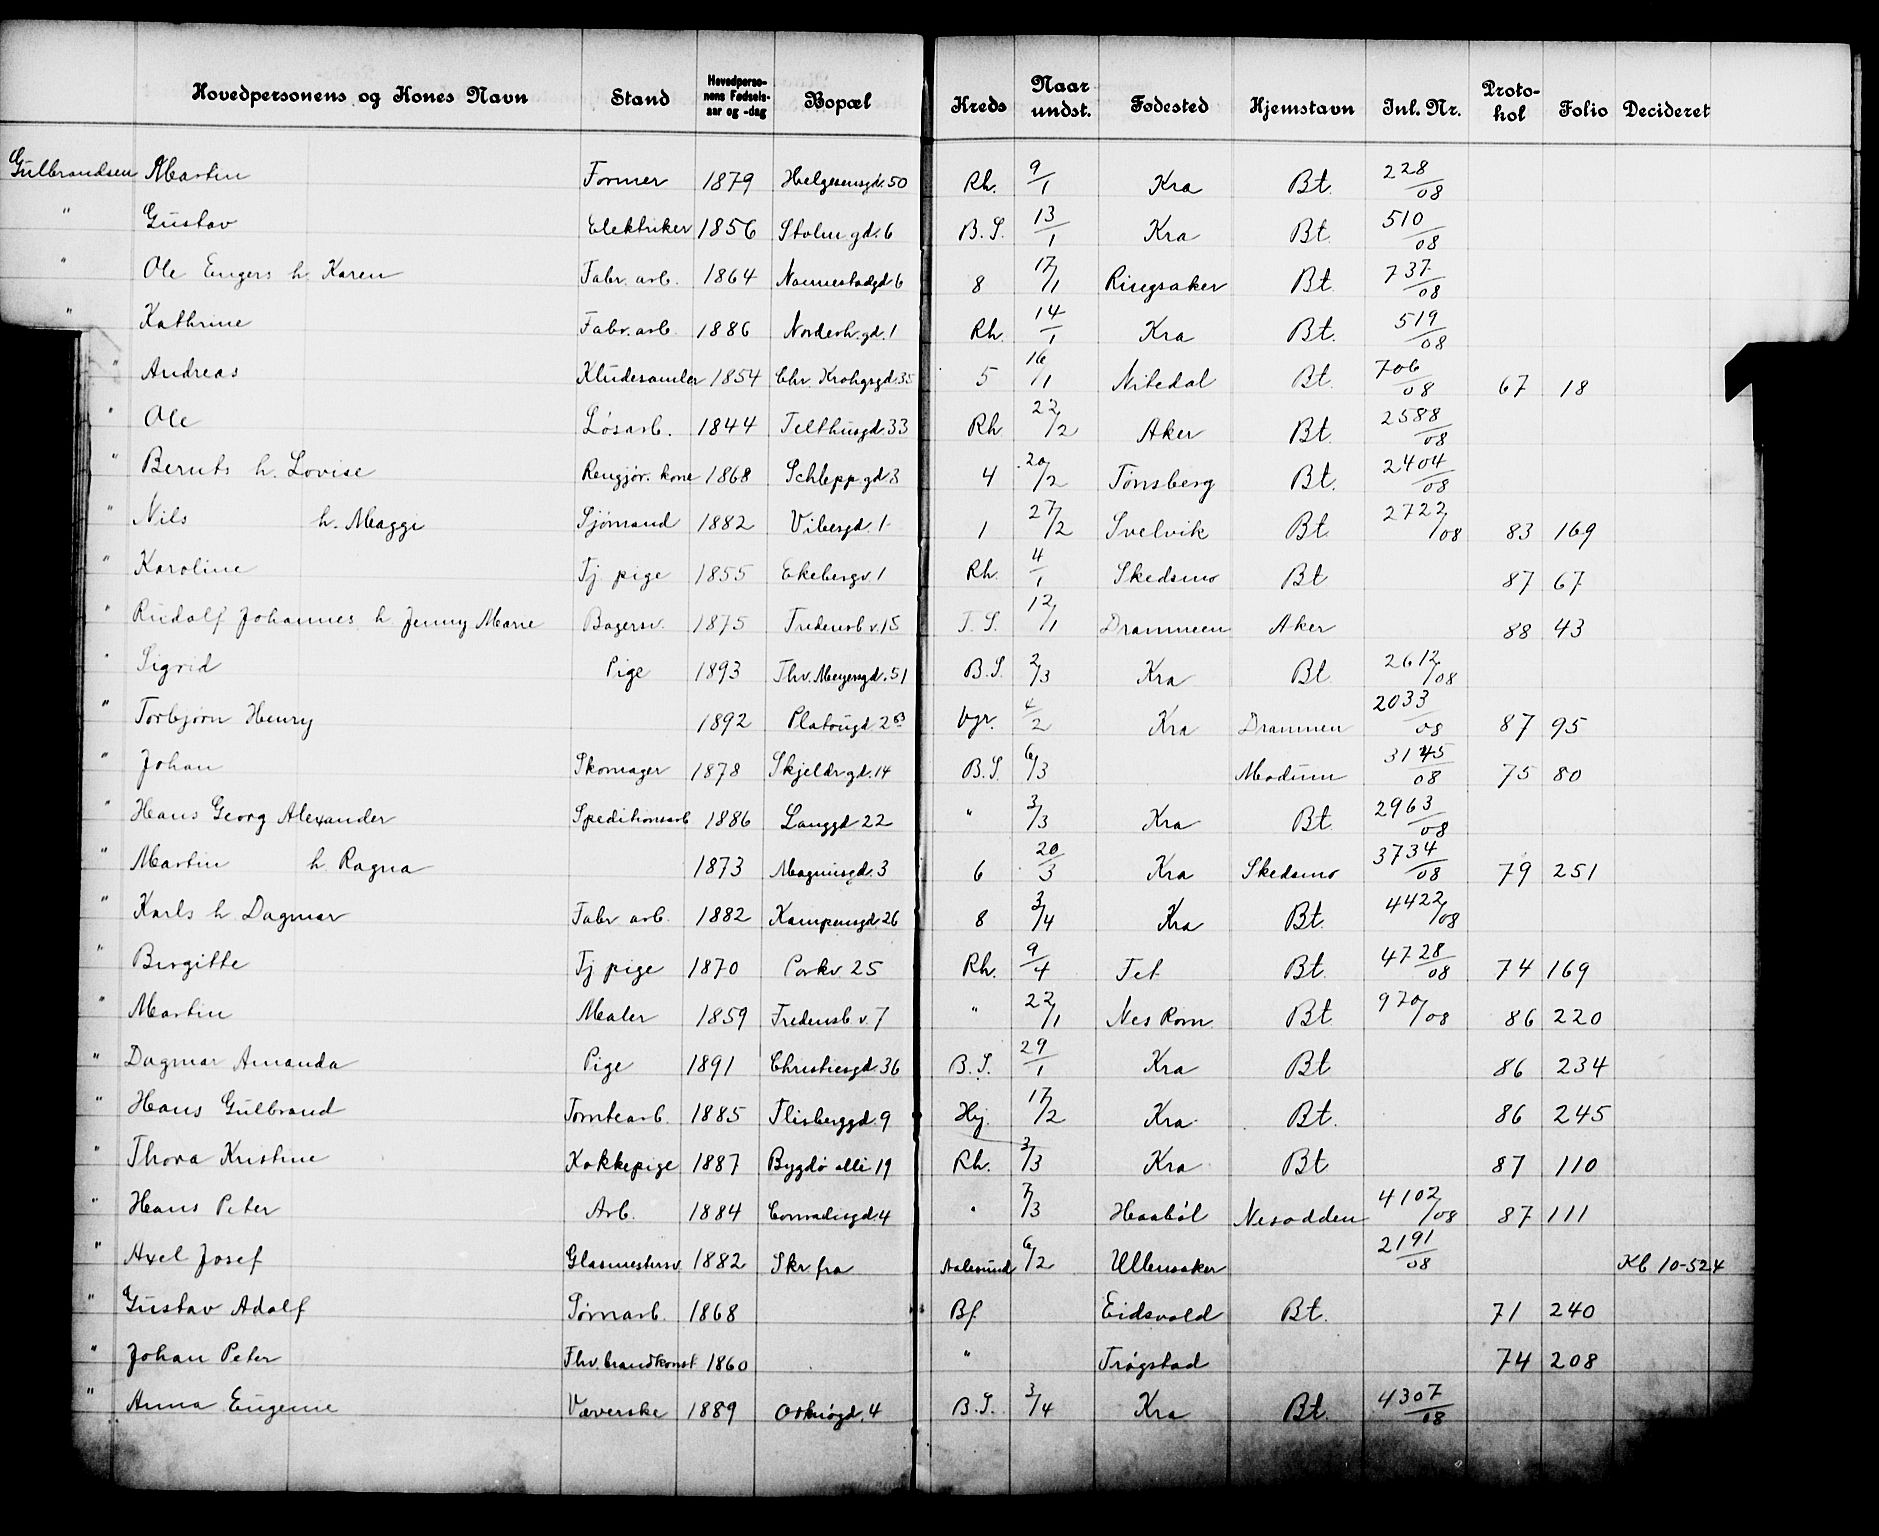 Hovedpersonens og Kones Navn Stand Hovedperso-nens Fødsels-aar og -dag Bopæl Kreds Naar undst. Fødested Hjemstavn Inl. Nr. Proto-kol Folio Decideret
Gulbrandsen Martin Former 1879 Helgesensgd. 50 Rh. 9/1 Kra Bt. 228/08
" Gustav Elektriker 1856 Stolmgd. 6 B.S. 13/1 Kra Bt. 510/08
" Ole Engers h. Karen Fabr. arb. 1864 Nannestadgd. 6 8 17/1 Ringsaker Bt. 737/08
" Kathrine Fabr. arb. 1886 Norderh. gd. 1 Rh. 14/1 Kra Bt. 519/08
" Andreas Kludesamler 1854 Chr. Krohgsgd. 35 5 16/1 Nitedal Bt. 706/08 67 18
" Ole Løsarb. 1844 Telthusgd. 33 Rh 22/2 Aker Bt. 2588/08
" Bernts h. Lovise Rengjør. kone 1868 Schleppgd. 3 4 20/2 Tønsberg Bt. 2404/08
" Nils h. Maggi Sjömand 1882 Vibesgd. 1 1 27/2 Svelvik Bt. 2722/08 83 169
" Karoline Tj. pige 1855 Ekebergv. 1 Rh. 4/1 Skedsmo Bt 87 67
" Rudolf Johannes h. Jenny Marie Bagersv. 1875 Fredensb. v. 15 T.S. 12/1 Drammen Aker 88 43
" Sigrid Pige 1893 Thv. Meyersgd. 51 B.S. 2/3 Kra Bt. 2612/08
" Torbjørn Henry 1892 Platougd 2 Vgr. 4/2 Kra Drammen 2033/08 87 95
" Johan Skomager 1878 Skjeldrgd. 14 B.S. 6/3 Modum 3145/08 75 80
" Hans Georg Alexander Speditionsarb 1886 Langgd 22 " 3/3 Kra Bt. 2963/08
" Martin h. Ragna 1873 Magnusgd. 3 6 20/3 Kra Skedsmo 3734/08 79 251
" Karls h. Dagmar Fabr arb. 1882 Kampensgd. 26 8 3/4 Kra Bt. 4422/08
" Birgitte Tj pige 1870 Parkv 25 Rh. 9/4 Fet Bt. 4728/08 74 169
" Martin Maler 1859 Fredensb. v. 7 " 22/1 Nes Rom. Bt. 970/08 86 220
" Dagmar Amanda Pige 1891 Christiesgd. 36 B.S. 29/1 Kra Bt 86 234
" Hans Gulbrand Tomtearb. 1885 Flisberggd. 9 Hj. 17/2 Kra Bt. 86 245
" Thora Kristine Kokkepige 1887 Bygdø alli 19 Rh. 3/3 Kra Bt 87 110
" Hans Peter Arb. 1884 Conradisgd. 4 " 7/3 Haabøl Nesodden 4102/08 87 111
" Axel Josef Glasmestersv. 1882 Skr. fra Aalesund 6/2 Ullensaker 2191/08 Kb 10-524
" Gustav Adolf Tømarb. 1868 Bf Eidsvold Bt. 71 240
" Johan Peter Fhv. brandkonst 1860 " Trøgstad 74 208
" Anna Eugenie Væverske 1889 Osknøgd. 4 B.S. 3/4 Kra Bt. 4307/08